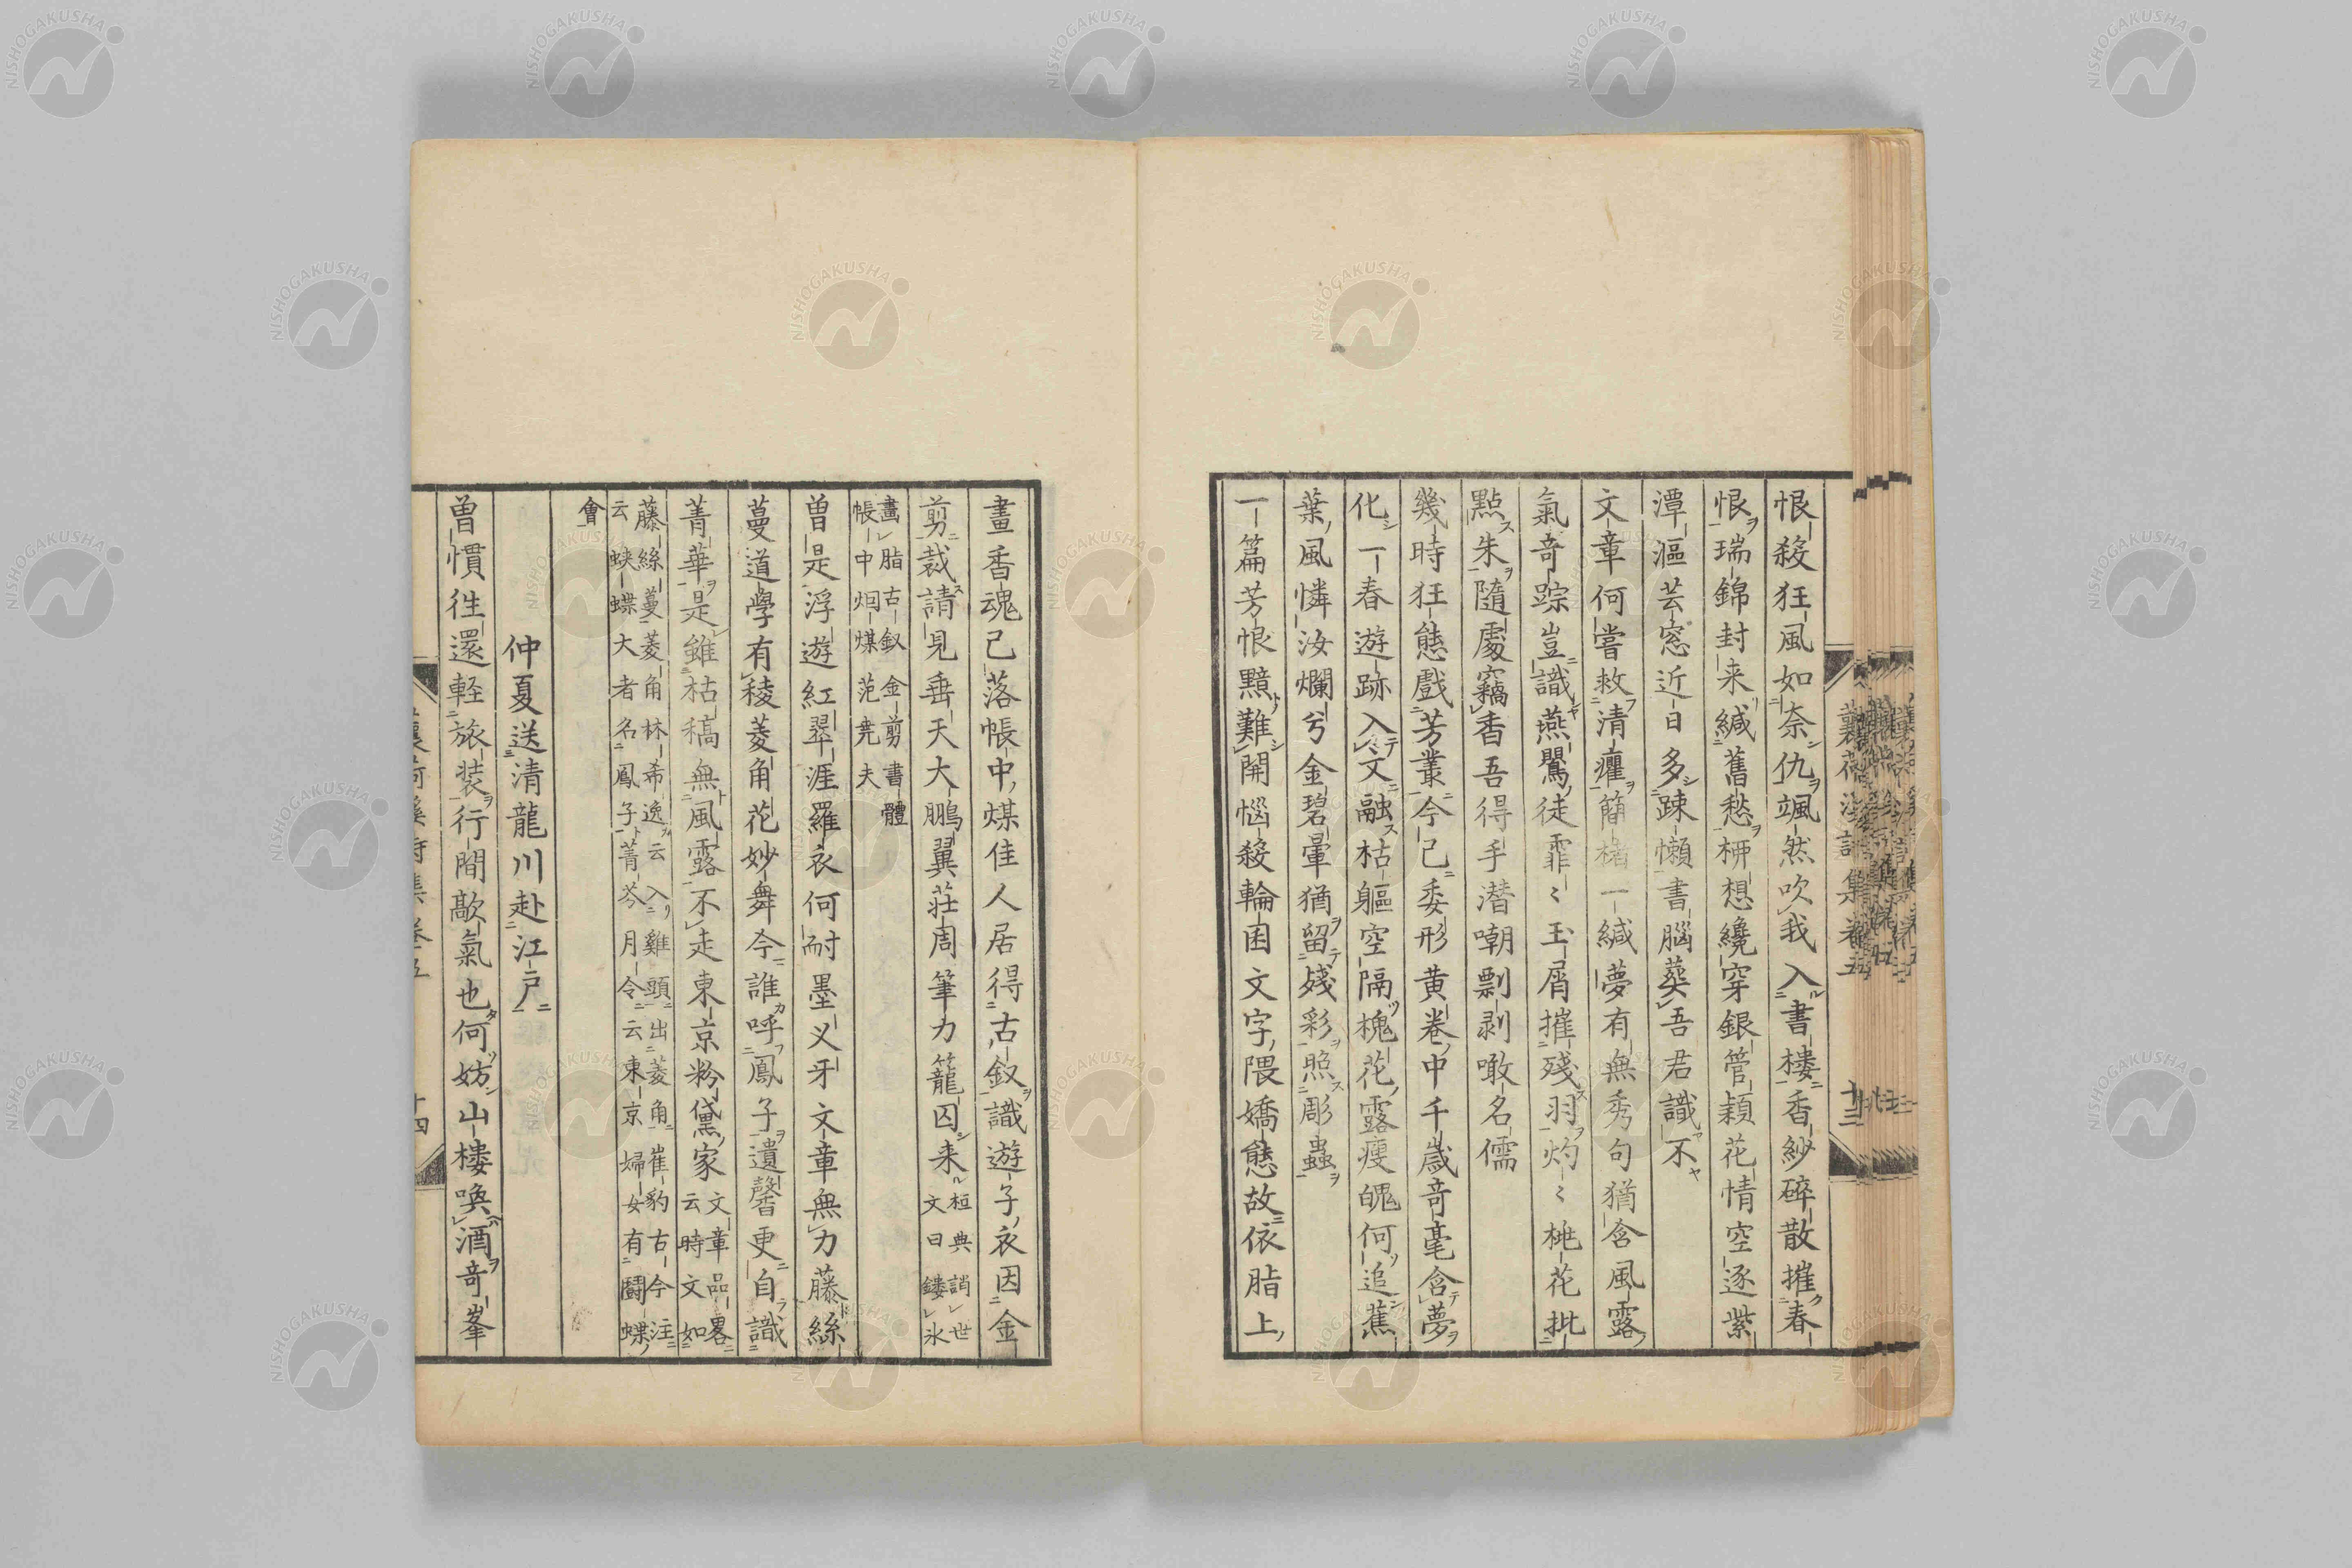 恨殺狂風如奈仇颯然吹我入書樓香紗碎散摧春
恨瑞錦封来緘舊愁栖想纔穿銀管穎花情空逐紫
潭漚芸窓近日多踈懶書腦葬吾君識不
文章何嘗救清癯簡楮一緘夢有無秀句猶含風露
氣奇踪豈識燕鶯徒霏〻玉屑摧殘羽灼〻桃花批
點朱隨處竊香吾得手潜嘲剽剥噉名儒
幾時狂態戲芳叢今已委形黄卷中千歳奇毫含夢
化一春遊跡入文融枯軀空隔槐花露痩魄何追蕉
葉風憐汝爛兮金碧暈猶留殘彩照彫蟲
一篇芳恨黯難開惱殺輪囷文字隈嬌態故依脂上
畫香魂已落帳中煤佳人居得古釵識遊子衣因金
剪裁請見垂天大鵬翼莊周筆力籠囚来
桓典誚世
文曰鏤氷
畫脂古釵金剪書體
帳中烟煤范尭夫
曽是浮遊紅翠涯羅衣何耐墨义牙文章無力藤絲
蔓道學有稜菱角花妙舞今誰呼鳳子遺馨更自識
菁華是雖枯稿無風露不走東京粉黛家
文章品畧
云時文如
藤絲蔓菱角林希逸云入雞頭出菱角崔豹古今注
云蛺蝶大者名鳳子菁苓月令云東京婦女有鬪蝶
會
仲夏送清龍川赴江戸
曽慣徃還軽旅装行間歊氣也何妨山樓喚酒奇峯
蘘荷溪詩集卷五
十三
十四
NISHOGAKUSHA